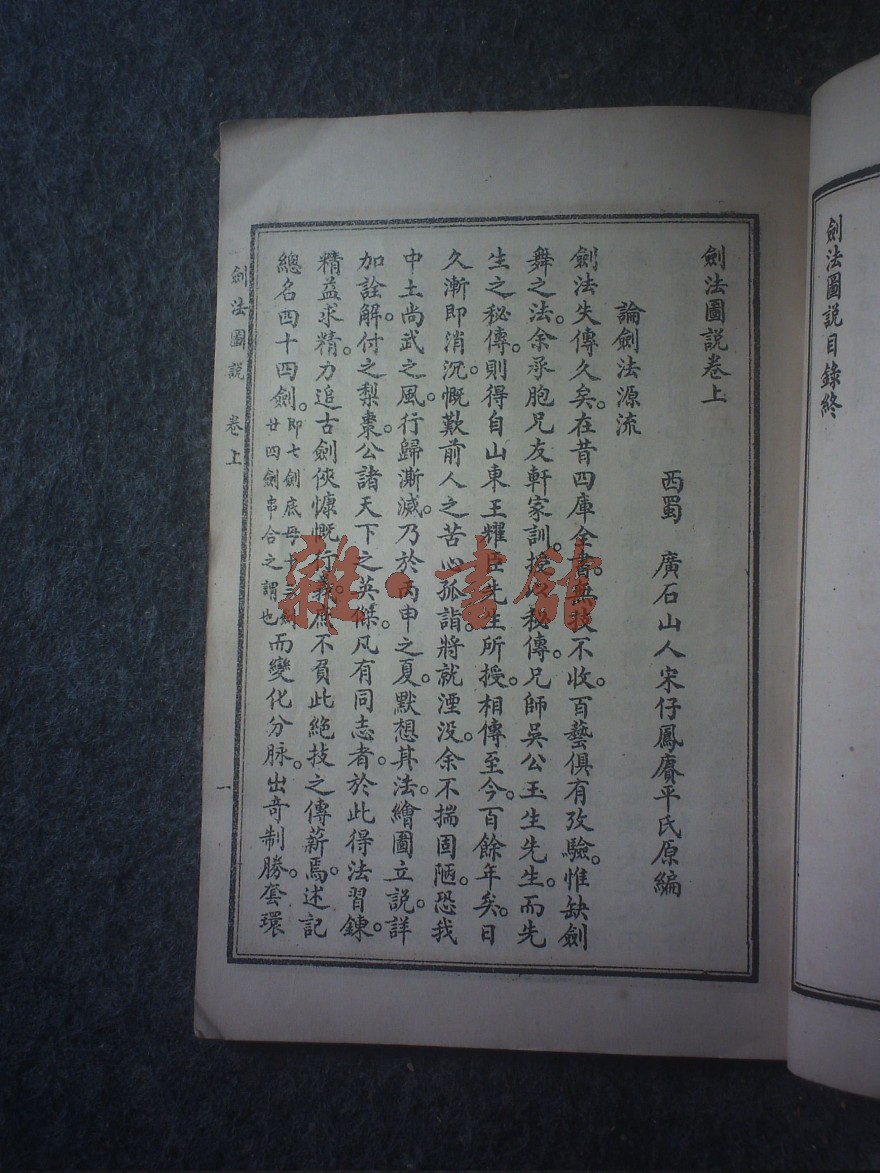 劍法圖說目錄終
劍法圖說卷上
西蜀　廣石山人宋仔鳳賡平氏原編
論劍法源流
劍法失傳久矣。在昔四庫全書。無技不收。百藝俱有攷驗。惟缺劍
舞之法。余承胞兄友軒家訓。授以秘傳。兄師吳公玉生先生。而先
生之秘傳。則得自山東王耀臣先生所授。相傳至今。百餘年矣。日
久漸即消沉。慨歎前人之苦心孤詣。將就湮没。余不揣固陋。恐我
中土尚武之風。行歸澌滅。乃於丙申之夏。默想其法。繪圖立説。詳
加詮解。付之梨棗。公諸天下之英傑。凡有同志者。於此得法習鍊。
精益求精。力追古劍俠慷慨行義。庶不負此絶技之傳薪焉。述記
總名四十四劍。即七劍底母十三劍
廿四劍串合之謂也
而變化分脉。出奇制勝。套環
劍法圖說　卷上
一
雜·書館